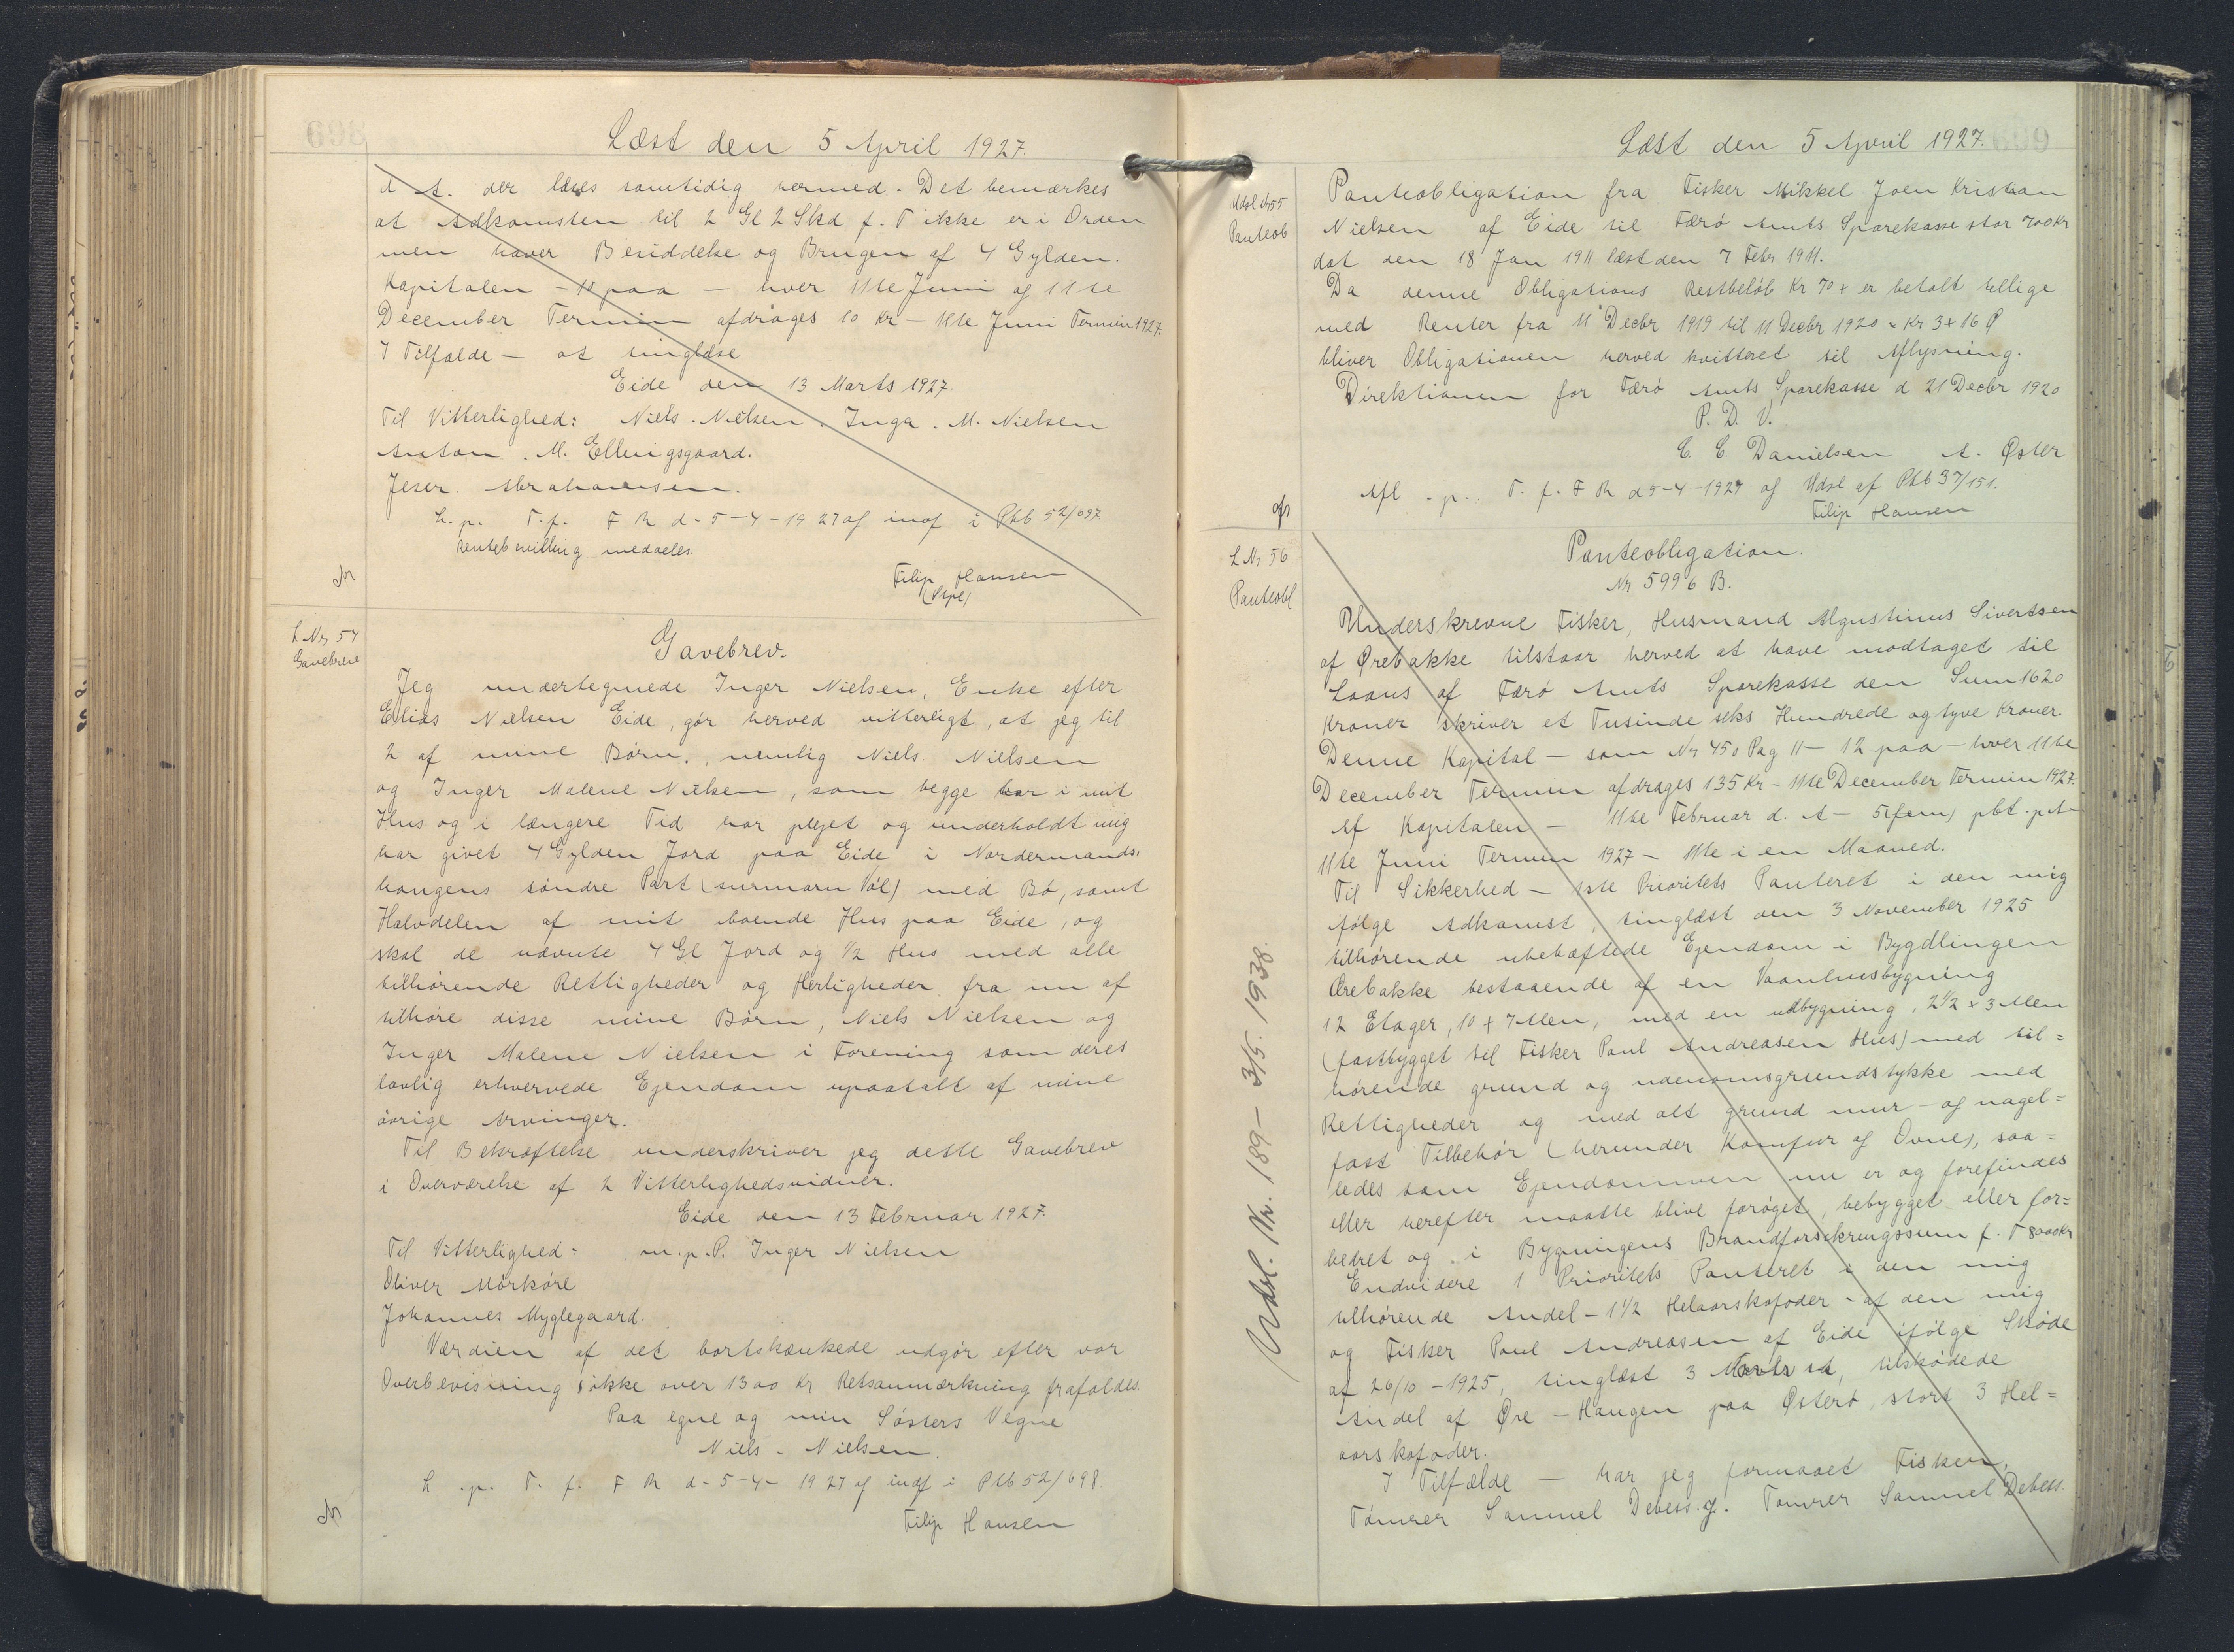 698
Læst den 5 April 1927.
d A. der læses samtidig hermed. Det bemærkes
at Adkomsten til 2 Gl 2 Skd f. T ikke er i Orden
men haver Besiddelse og Brugen af 4 Gylden.
Kapitalen - 10 paa - hver 11te Juni og 11te
December Termin afdrages 10 Kr - 11te Juni Termin 1927.
I Tilfælde - at tinglæse
Eide den 13 Marts 1927
Til Vitterlighed: Niels. Nielsen. Inga. M. Nielsen
Anton. M. Ellingsgaard.
Jeser. Abrahamsen.
L. p. T. f. F R d - 5 - 4 - 1927 og indf i Ptb 52/697
Rentebevilling meddeles.
Filip Hansen
L Nr 54
Gavebrev
Gavebrev.
Jeg undertegnede Inger Nielsen, Enke efter
Elias Nielsen Eide, gør herved vitterligt, at jeg til
2 af mine Børn, nemlig Niels Nielsen
og Inger Malene Nielsen, som begge bor i mit
Hus og i længere Tid har plejet og underholdt mig
har givet 4 Gylden Jord paa Eide i Nordermands-
haugens søndre Part (nurmaru Vøl) med Bø, samt
Halvdelen af mit iboende Hus paa Eide, og
skal de nævnte 4 Gl Jord og 1/2 Hus med alle
tilhørende Rettigheder og Herligheder fra nu af
tilhøre disse mine Børn, Niels Nielsen og
Inger Malene Nielsen i Forening som deres
lovlig erhvervede Ejendom upaatalt af mine
øvrige Arvinger.
Til Bekræftelse underskriver jeg dette Gavebrev
i Overværelse af 2 Vitterlighedsvidner.
Eide den 13 Februar 1927.
Til Vitterlighed: m. p. P. Inger Nielsen
Oliver Mørkøre
Johannes Myglegaard.
Værdien af det bortskænkede udgør efter vor
Overbevisning ikke over 1300 Kr Retsanmærkning frafaldes.
Paa egne og min Søsters Vegne
Niels. Nielsen.
L. p. T. f. F R d - 5 - 4 - 1927 og indf i Ptb 52/698
Filip Hansen
699
Læst den 5 April 1927.
Udsl Nr 55
Panteob
Panteobligation fra Fisker Mikkel Joen Kristian
Nielsen af Eide til Færø Amts Sparekasse stor 700 Kr
dat den 18 Jan 1911 læst den 7 Febr 1911.
Da denne Obligations Restbeløb Kr 70 + er betalt tillige
med Renter fra 11 Decbr 1919 til 11 Decbr 1920 = Kr 3 + 16 Ø
bliver Obligationen herved kvitteret til Aflysning.
Direktionen for Færø Amts Sparekasse d 21 Decbr 1920
P. D. V.
C. C. Danielsen A. Øster
Afl. p. T. f. F R d 5-4-1927 og Udsl af Ptb 37/151.
Filip Hansen
L Nr 56
Panteobl
Panteobligation.
Nr 5996 B.
Underskrevne Fisker, Husmand Augustinus Sivertsen
af Ørebakke tilstaar herved at have modtaget til
Laans af Færø Amts Sparekasse den Sum 1620
Kroner skriver et Tusinde seks Hundrede og tyve Kroner.
Denne Kapital - som Nr 450 Pag 11 - 12 paa - hver 11te
December Termin afdrages 135 Kr - 11te December Termin 1927.
Af Kapitalen - 11te Februar d. A - 5 (fem) pCt. p A -
11te Juni Termin 1927 - 11te i en Maaned.
Til Sikkerhed - 1ste Prioritets Panteret i den mig
ifølge Adkomst, tinglæst den 3 November 1925
tilhørende ubehæftede Ejendom i Bygdlingen
Ørebakke bestaaende af en Vaanhusbygning
12 Etager, 10 + 7 Alen, med en udbygning, 2 1/2 x 3 Alen
(fastbygget til Fisker Poul Andreasen Hus) med til=
hørende grund og udenomsgrundstykke med
Rettigheder og med alt grund mur- og nagel=
fast Tilbehør (herunder Komfur og Ovne), saa=
ledes som Ejendommen nu er og forefindes
eller herefter maatte blive forøget, bebygget eller for=
bedret og i Bygningens Brandforsikringssum f. T 8000 Kr
Endvidere 1 Prioritets Panteret i den mig
tilhørende Andel - 1 1/2 Helaarskofoder - af den mig
og Fisker Poul Andreasen af Eide ifølge Skøde
af 26/10 - 1925, tinglæst 3 Novbr sd, tilskødede
Andel af Øre - Haugen paa Østerø, stort 3 Hel=
aarskofoder.
I Tilfælde - har jeg formaaet Fisker,
Tømrer Samuel Debess. og. Tømrer Samuel Debess.
Udsl. Nr. 189 - 3/5. 1938.